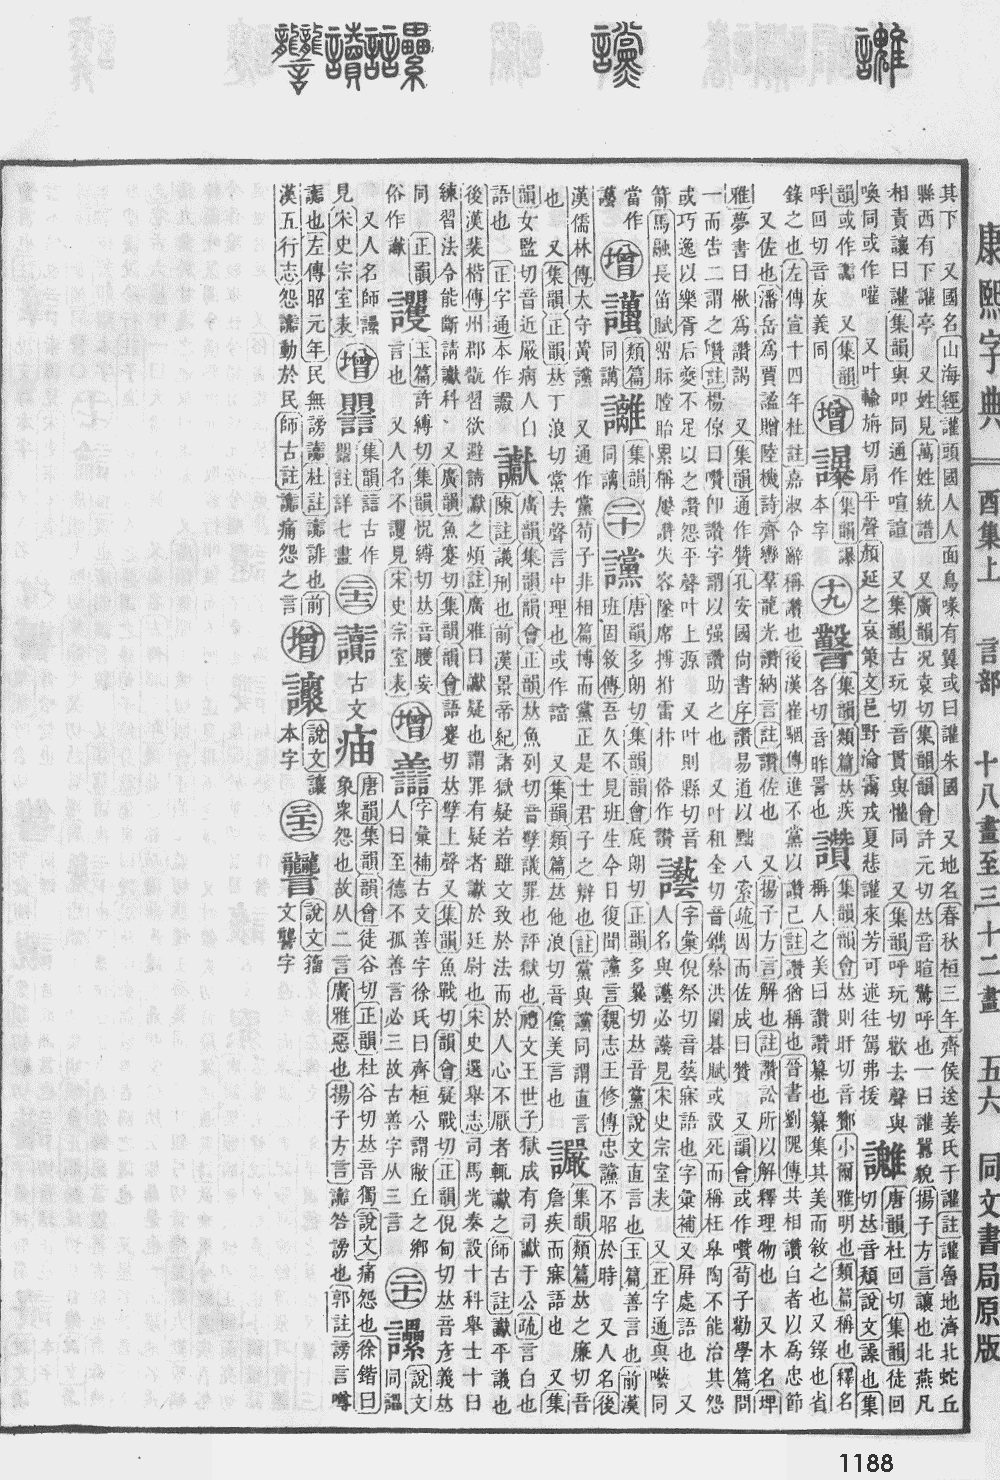 康熙字典 酉集上 言部 十八畫至三十二畫 五六 同文書局原版
其下 又國名山海經讙頭國人人面鳥喙有翼或曰讙朱國 又地名春秋桓三年齊侯送姜氏于讙註讙魯地濟北蛇丘
縣西有下讙亭 又姓見萬姓統譜 又廣韻况袁切集韻韻會許元切𠀤音暄驚呼也一曰讙囂貌揚子方言讓也北燕凡
相責讓曰讙集韻與吅同通作喧諠 又集韻古玩切音貫與懽同 又集韻呼玩切歡去聲與
喚同或作嚾 又叶輸旃切扇平聲顏延之哀策文邑野淪藹戎夏悲讙來芳可述往駕弗援
唐韻杜回切集韻徒回
切𠀤音頹說文譟也集
韻或作 又集韻
呼回切音灰義同
增
集韻
本字
十九
集韻類篇𠀤疾
各切音昨詈也
讚
集韻韻會𠀤則肝切音酇小爾雅明也類篇稱也釋名
稱人之美曰讚讚纂也纂集其美而敘之也又錄也省
錄之也左傳宣十四年杜註嘉淑令辭稱讚也後漢崔駰傳進不黨以讚己註讚猶稱也晉書劉隗傳共相讚白者以為忠節
又佐也潘岳為賈謐贈陸機詩齊轡羣龍光讚納言註讚佐也 又揚子方言解也註讚訟所以解釋理物也 又木名埤
雅夢書曰楸為讚謁 又集韻通作贊孔安國尚書序讚易道以黜八索疏因而佐成曰贊 又韻會或作囋荀子勸學篇問
一而告二謂之囋註楊倞曰囋卽讚字謂以强讚助之也 又叶租全切音鐫蔡洪圍碁賦或設死而稱枉臯陶不能治其怨
或巧逸以樂胥后夔不足以之讚怨平聲叶上源 又叶則縣切音
箭馬融長笛賦㽞眎瞠眙累稱屢讚失容墜席搏拊雷抃 俗作讃
讛
字彙倪祭切音藝寐語也字彙補又屏處語也 又
人名與讛必讛見宋史宗室表 又正字通與囈同
當作
讛
增
類篇
同
集韻
同
二十
讜
唐韻多朗切集韻韻會底朗切正韻多曩切𠀤音黨說文直言也玉篇善言也前漢
班固敘傳吾久不見班生今日復聞讜言魏志王修傳忠讜不昭於時 又人名後
漢儒林傳太守黃讜 又通作黨荀子非相篇博而黨正是士君子之辯也註黨與讜同謂直言
也 又集韻正韻𠀤丁浪切當去聲言中理也或作譡 又集韻類篇𠀤他浪切音儻美言也
讝
集韻類篇𠀤之廉切音
詹疾而寐語也 又集
韻女監切音近嚴病人自
語也 正字通本作
讞
廣韻集韻韻會正韻𠀤魚列切音孼議罪也評獄也禮文王世子獄成有司讞于公疏言白也
陳註議刑也前漢景帝紀諸獄疑若雖文致於法而於人心不厭者輒讞之師古註讞平議也
後漢裴楷傳州郡翫習欲避請讞之煩註廣雅曰讞疑也謂罪有疑者讞於廷尉也宋史選舉志司馬光奏設十科舉士十曰
練習法令能斷請讞科 又廣韻魚蹇切集韻韻會語蹇切𠀤孼上聲又集韻魚戰切韻會疑戰切正韻倪甸切𠀤音彥義𠀤
同 正韻
俗作
玉篇許縛切集韻怳縛切𠀤音矍妄
言也 又人名不見宋史宗室表
增
譱
字彙補古文善字徐氏曰齊桓公謂敝丘之鄉
人曰至德不孤善言必三故古善字从三言
二十一
說文
同讄
又人名師
見宋史宗室表
增
集韻古作
註詳七畫
二十二
讟
古文
唐韻集韻韻會徒谷切正韻杜谷切𠀤音獨說文痛怨也徐鍇曰
象衆怨也故从二言廣雅惡也揚子方言讟咎謗也郭註謗言噂
讟也左傳昭元年民無謗讟杜註讟誹也前
漢五行志怨讟動於民師古註讟痛怨之言
增
說文讓
本字
三十二
說文籀
文讋字
1188